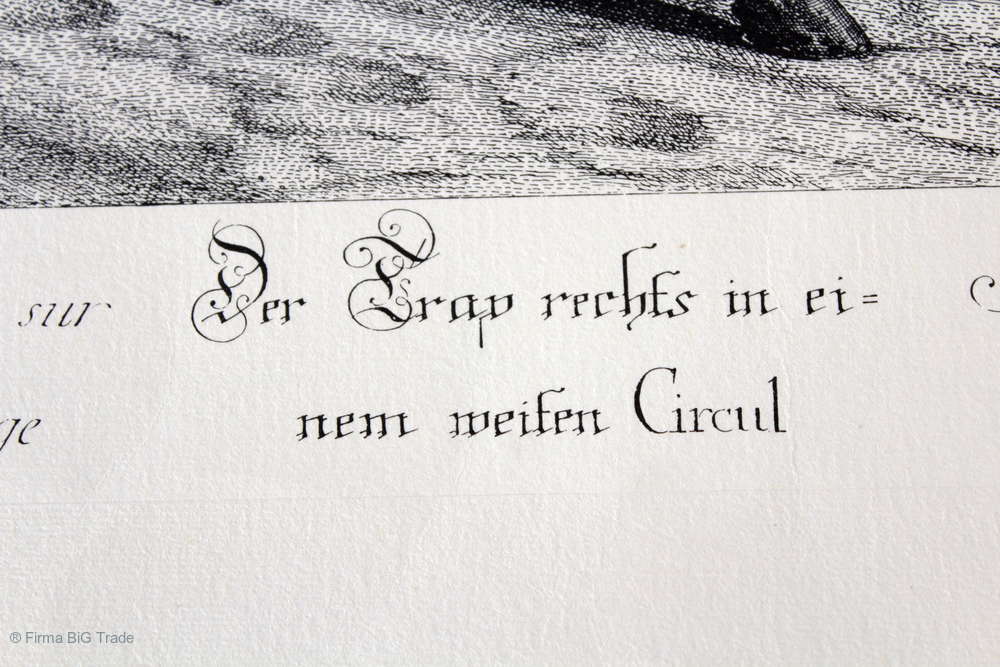 sur
Der Trap rechts in ei=
ge
nem weiten Circul
® Firma BiG Trade